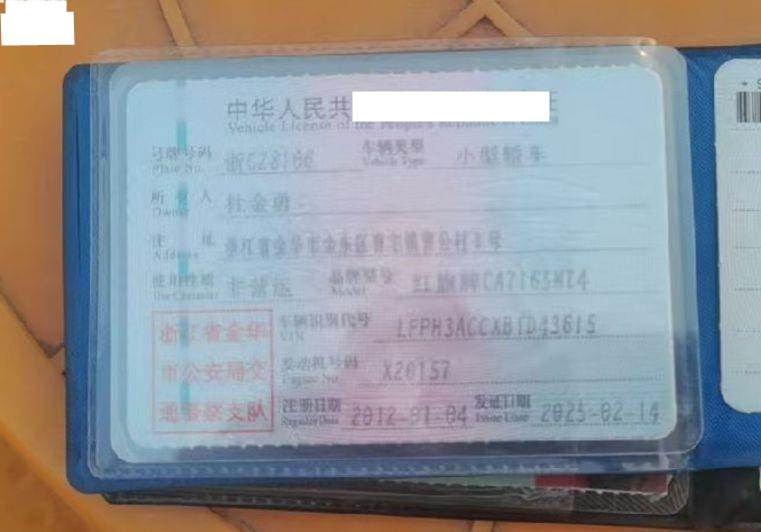 中华人民共
Vehicle License of the People's Republic of
号牌号码 车辆类型 小型轿车
Plate No. Vehicle Type
所 人 杜金勇
Owner
住 址 浙江省金华市金东区
Address
使用性质 非营运 品牌型号 红旗牌CA7165MT4
Use Character Model
浙江省金华 车辆识别代号
VIN LFPH3ACCXB1D43615
市公安局交 发动机号码 X20157
Engine No.
注册日期 2012-01-04 发证日期 2025-02-14
Register Date Issue Date